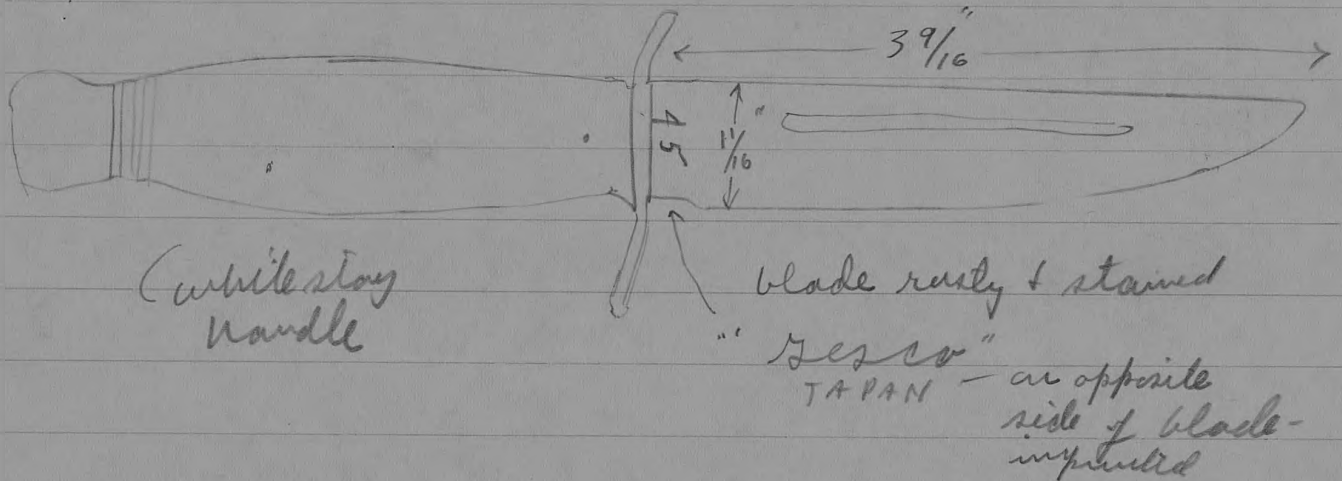 3 9/16"
11/16"
45
(white stag
handle
blade rusty & stained
" Gesco "
JAPAN - on opposite
side of blade -
imprinted